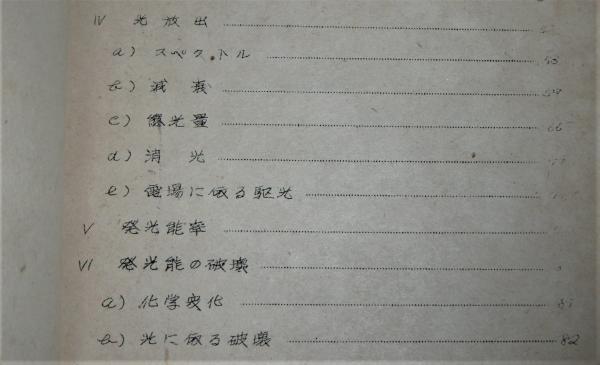 IV 光放出
a) スペクトル 53
b) 減衰
c) 爆光量
d) 消光
e) 電場に依る駆光
V 発光能率
VI 発光能の破壊
a) 化学変化 81
b) 光に依る破壊 82